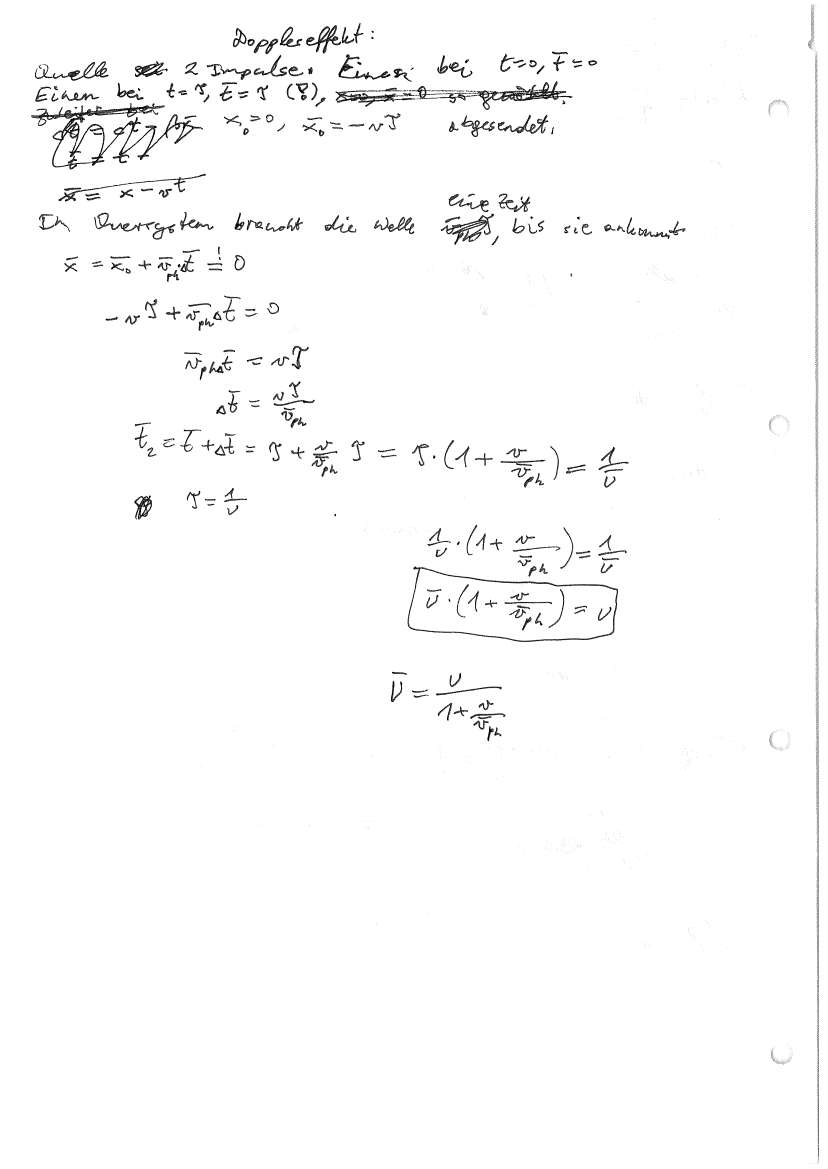 Dopplereffekt:
Quelle 2 Impulse. Einen bei t=0, t̄=0
Einen bei t=T, t̄=T (?!),
x₀=0, x̄₀=-vT abgesendet.
x̄ = x-vt
In Querrsystem braucht die Welle eine Zeit, bis sie ankommt
x̄ = x̄₀ + v̄_ph Δt̄ =! 0
-vT + v̄_ph Δt̄ = 0
v̄_ph Δt̄ = vT
Δt̄ = vT/v̄_ph
t̄₂ = t̄ + Δt̄ = T + v/v̄_ph T = T·(1 + v/v̄_ph) = 1/ν̄
T = 1/ν
1/ν·(1 + v/v̄_ph) = 1/ν̄
ν̄·(1 + v/v̄_ph) = ν
ν̄ = ν/(1 + v/v̄_ph)